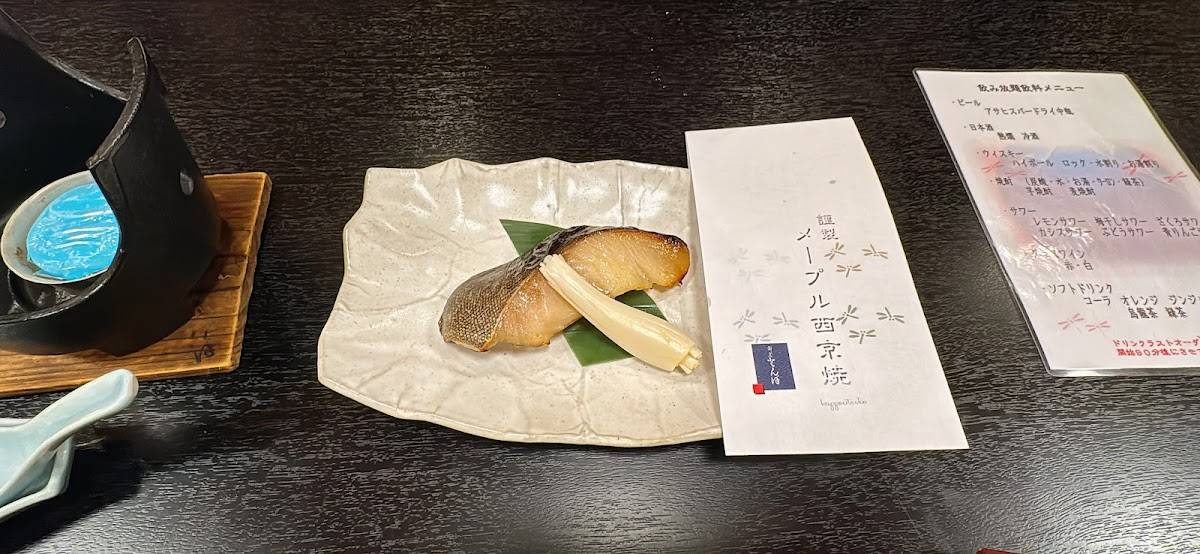 謹製
メープル西京焼
飲み放題飲料メニュー
・ビール
アサヒスーパードライ中瓶
・日本酒
熱燗 冷酒
・ウィスキー
ハイボール ロック・水割り・お湯割り
・焼酎 (炭酸・水・お湯・ウーロン・緑茶)
芋焼酎 麦焼酎
・サワー
レモンサワー 梅干しサワー ざくろサワ
カシスサワー ぶどうサワー 青りんご
ワイン
赤・白
・ソフトドリンク
コーラ オレンジ ジンジ
烏龍茶 緑茶
ドリンクラストオーダ
開始90分後にさせ